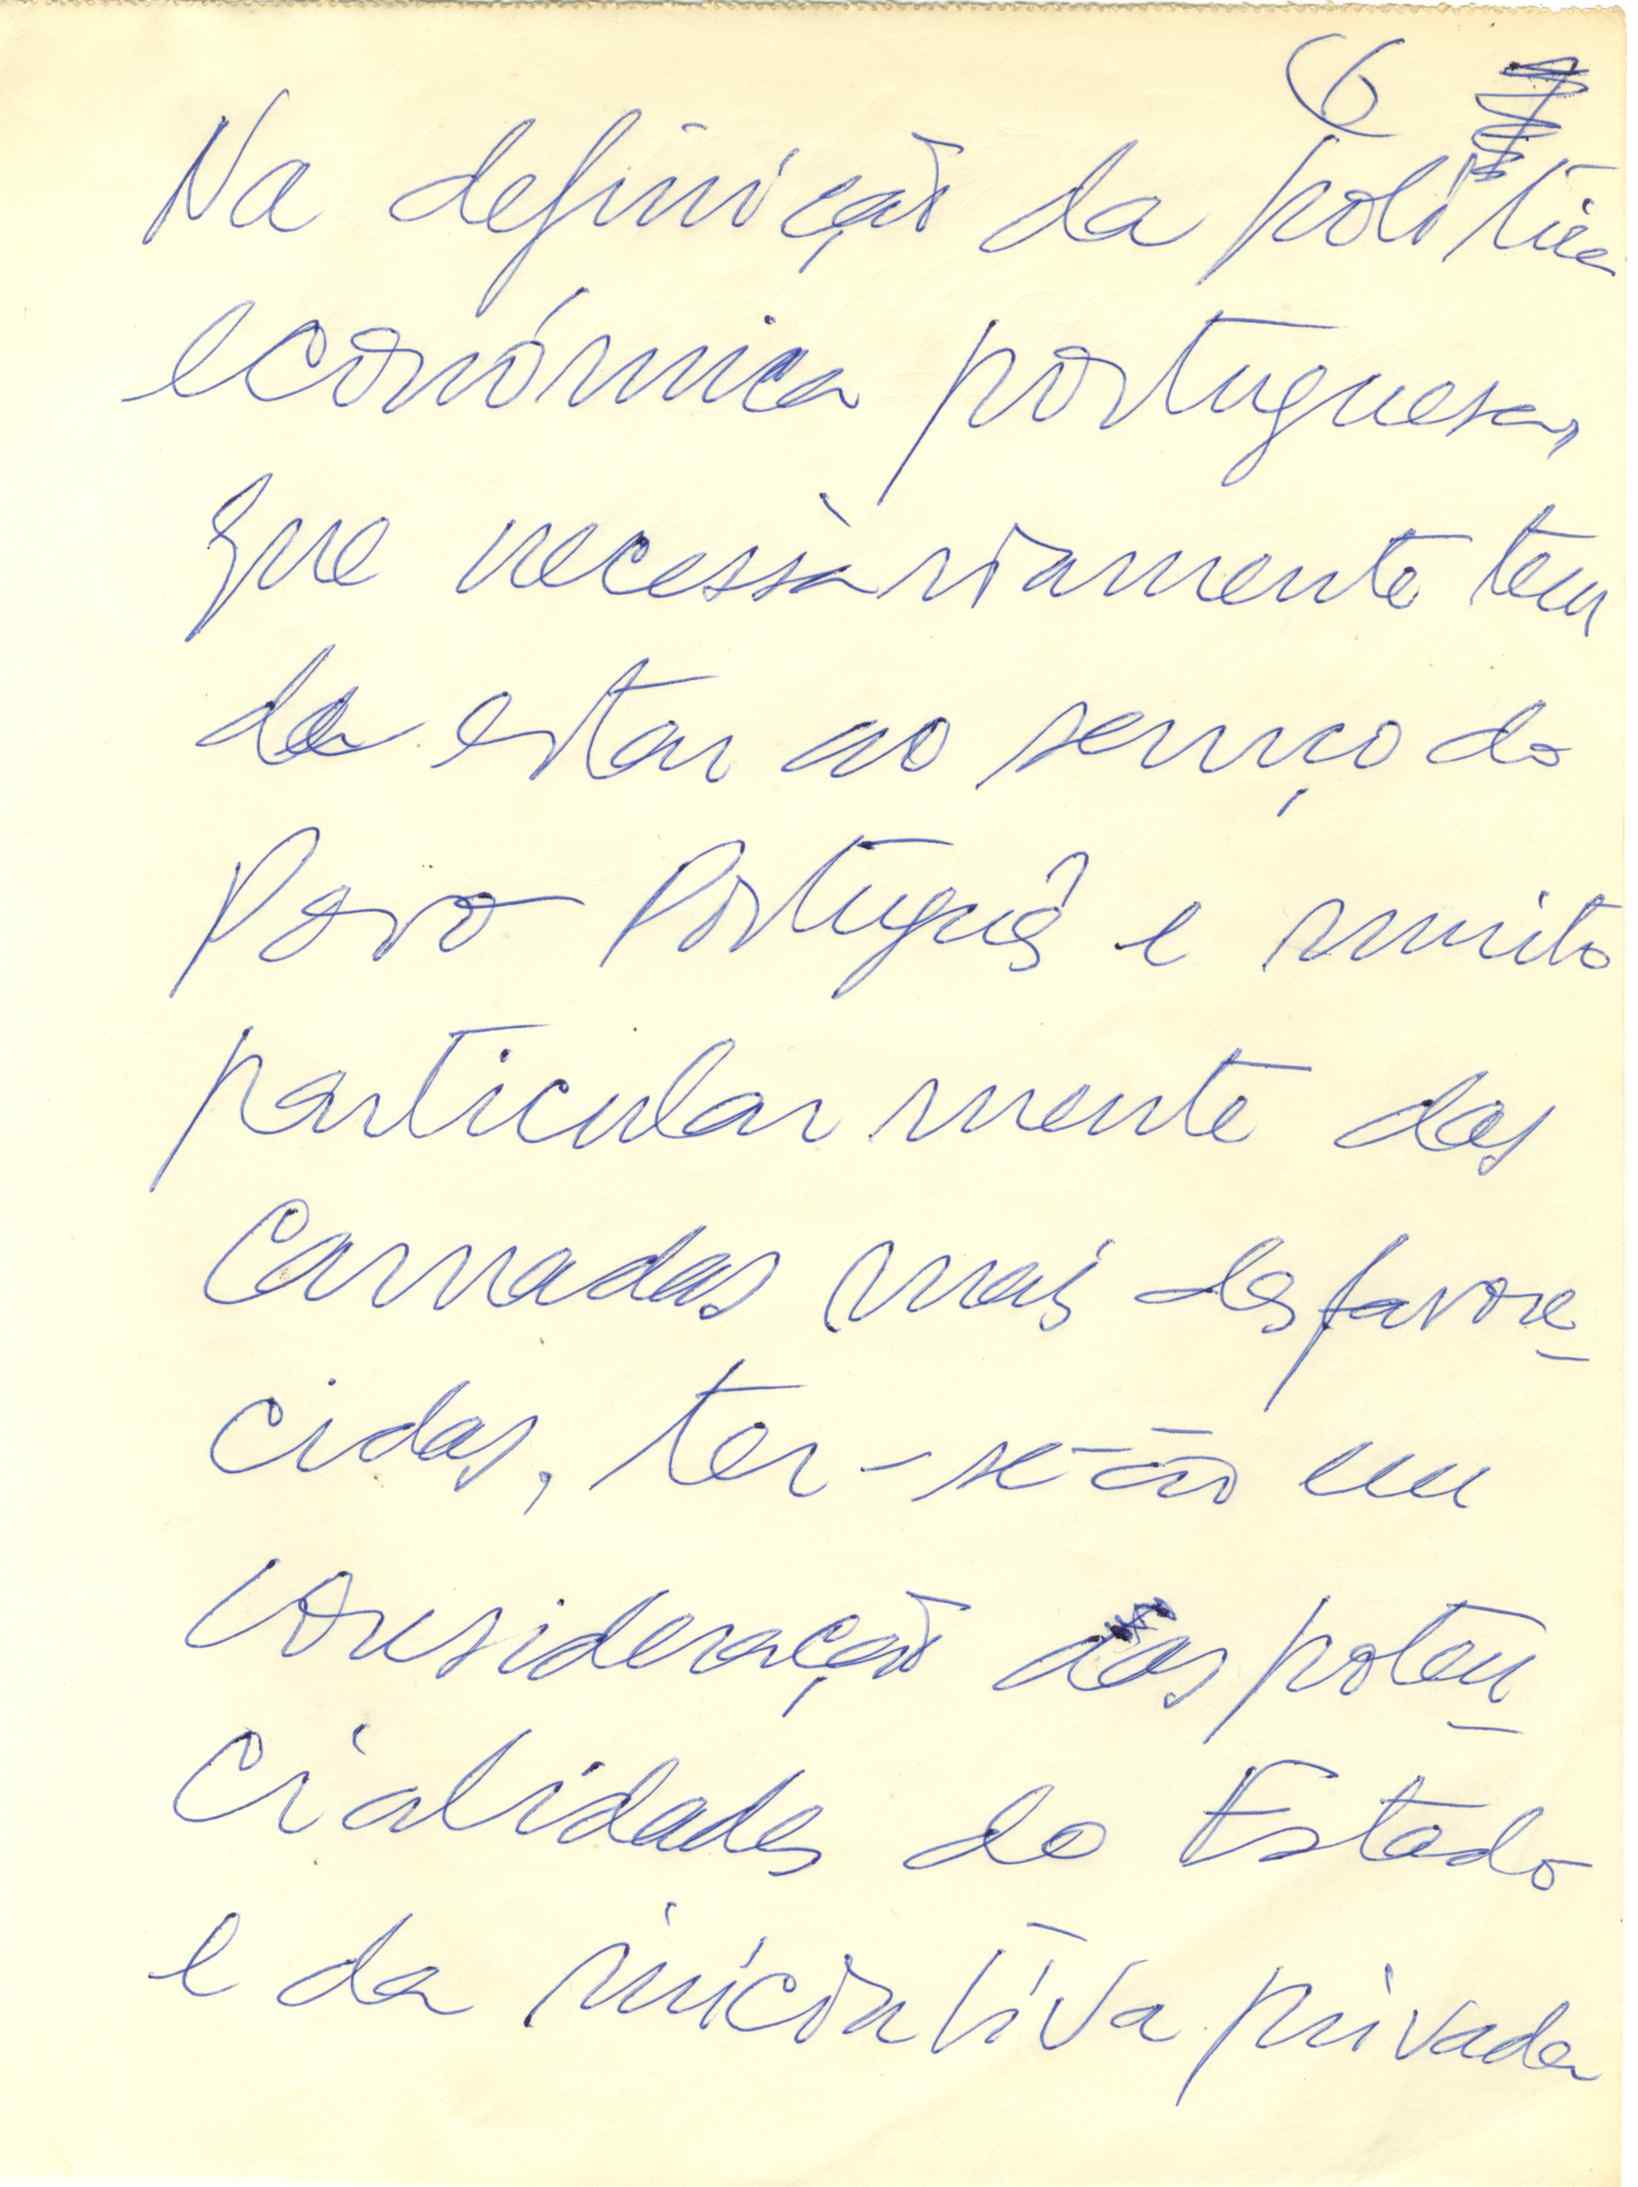 6
Na definição da política
económica portuguesa,
que necessàriamente tem
de estar ao serviço do
Povo Português e muito
particularmente das
camadas mais desfavore-
cidas, ter-se-ão em
consideração as poten-
cialidades do Estado
e da iniciativa privada